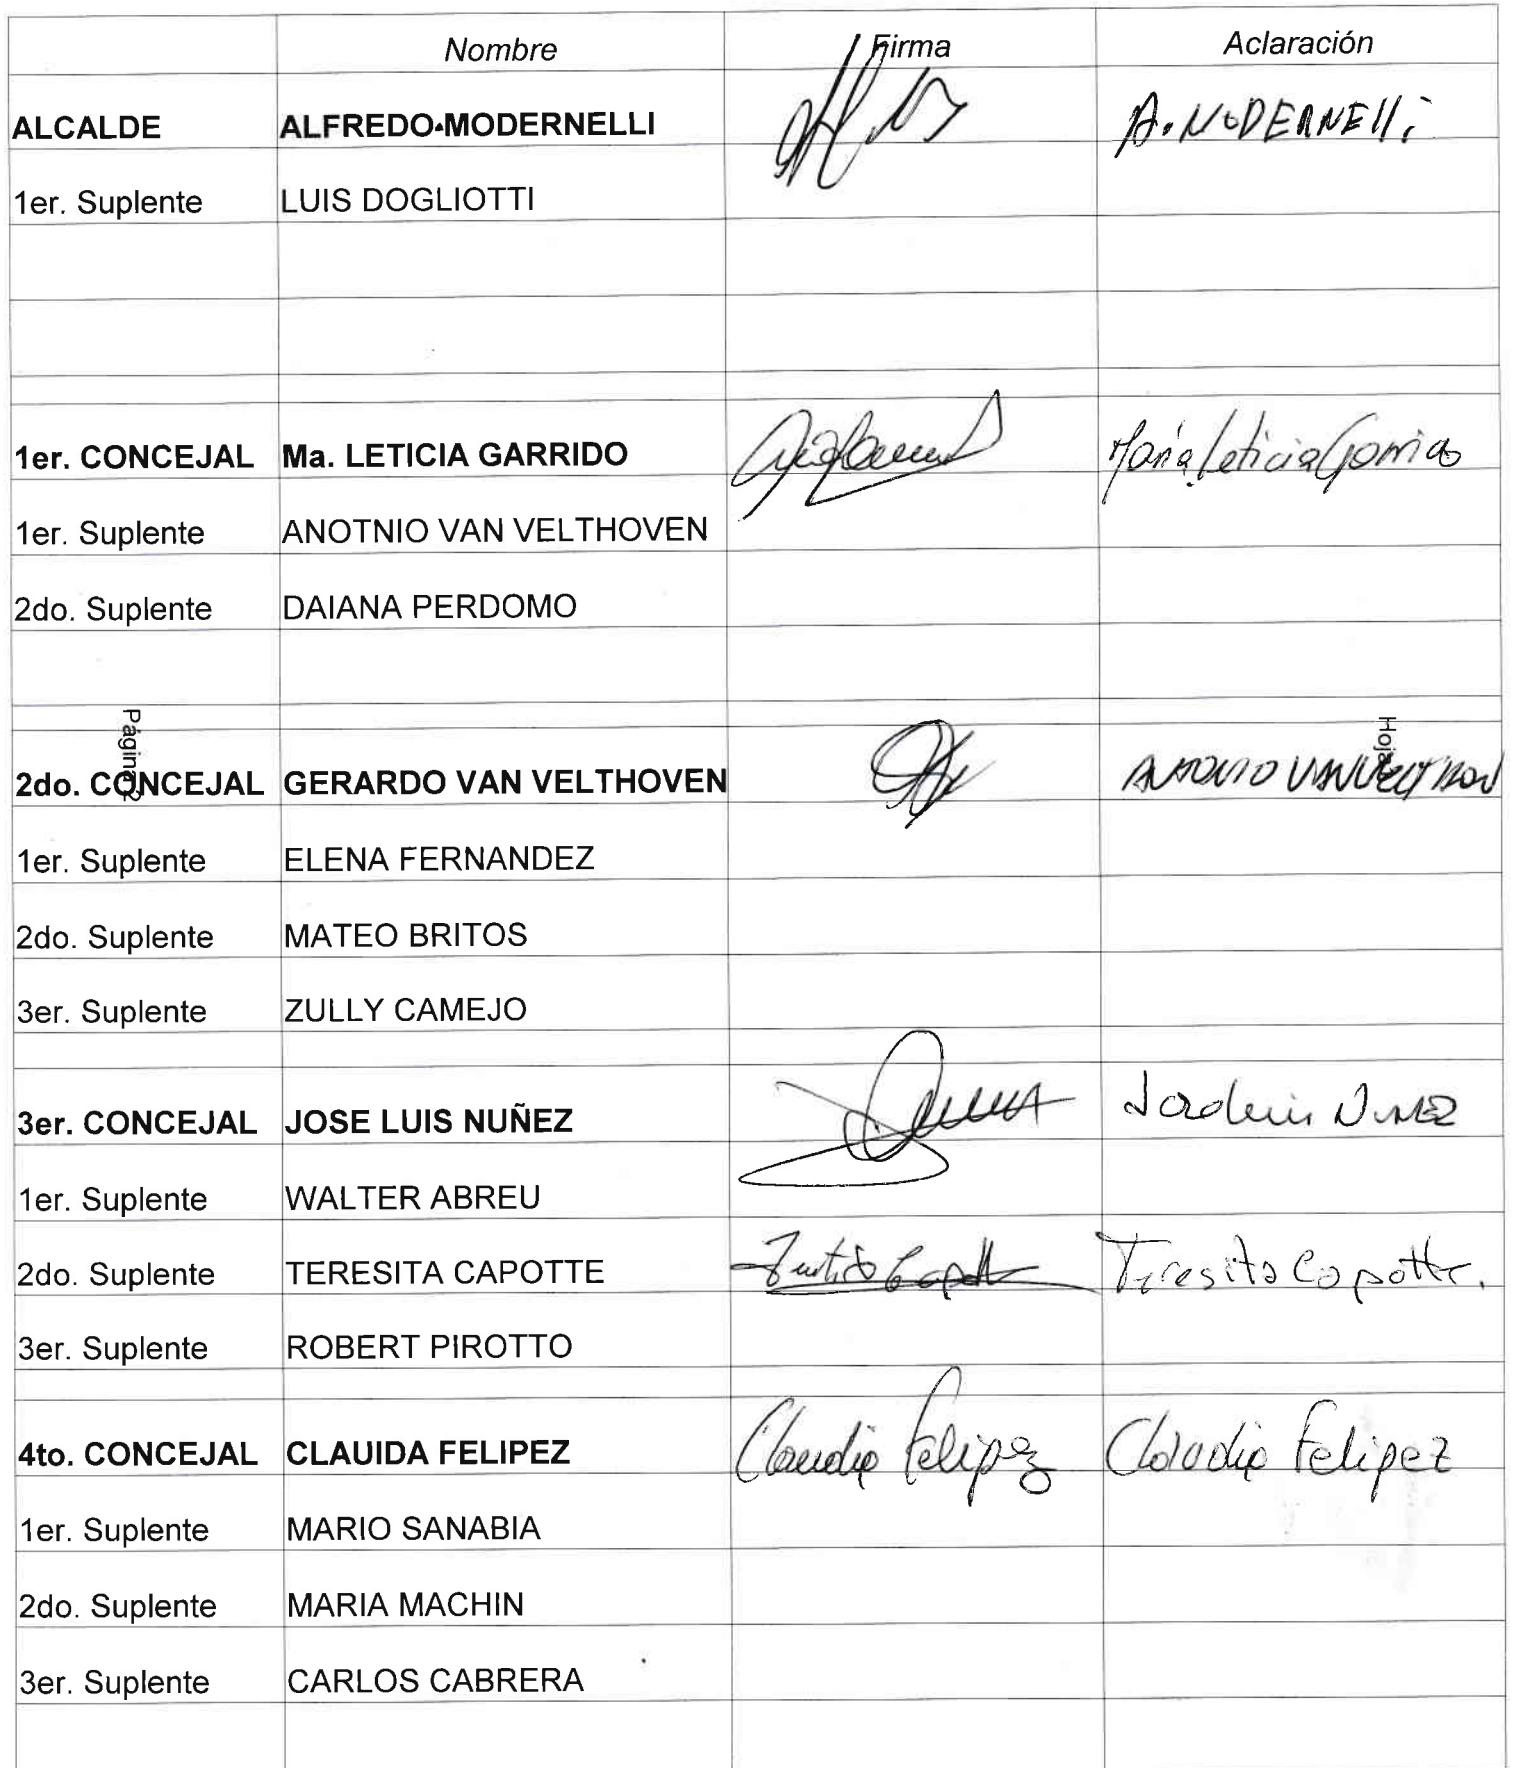 Nombre Firma Aclaración
ALCALDE ALFREDO MODERNELLI A. MODERNELLi
1er. Suplente LUIS DOGLIOTTI
1er. CONCEJAL Ma. LETICIA GARRIDO María Leticia Garrido
1er. Suplente ANOTNIO VAN VELTHOVEN
2do. Suplente DAIANA PERDOMO
Página 2 Hoja
2do. CONCEJAL GERARDO VAN VELTHOVEN ANTONIO VAN VELTHOVEN
1er. Suplente ELENA FERNANDEZ
2do. Suplente MATEO BRITOS
3er. Suplente ZULLY CAMEJO
3er. CONCEJAL JOSE LUIS NUÑEZ Jose Luis Nuñez
1er. Suplente WALTER ABREU
2do. Suplente TERESITA CAPOTTE Capotte Teresita Capotte.
3er. Suplente ROBERT PIROTTO
4to. CONCEJAL CLAUIDA FELIPEZ Claudia Felipez Claudia Felipez
1er. Suplente MARIO SANABIA
2do. Suplente MARIA MACHIN
3er. Suplente CARLOS CABRERA